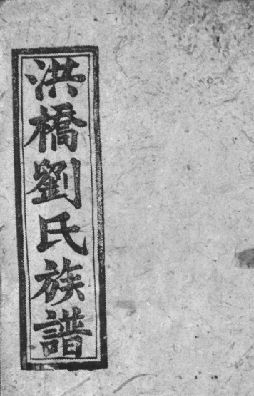 洪橋劉氏族譜